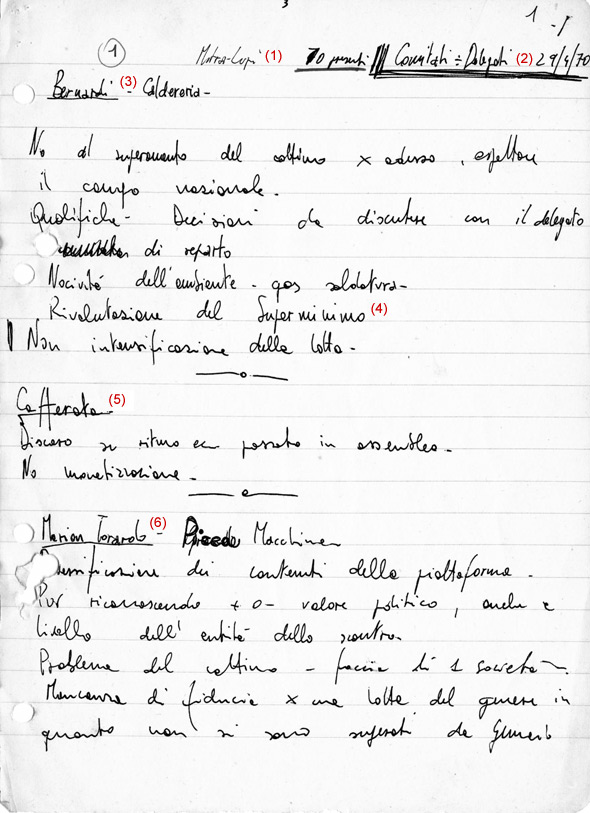 3
1 -
1 Matra-Lupi (1) 70 presenti Comitati ÷ Delegati (2) 29/4/70
Bernardi (3) - Caldereria -
No al superamento del cottimo x adesso, aspettare
il campo nazionale.
Qualifiche - Decisioni da discutere con il delegato
di reparto
Nocività dell'ambiente - gas saldatura -
Rivalutazione del Superminimo (4)
Non intensificazione della lotta -
Cafferata (5)
Discorso su ritmo ecc passato in assemblea.
No monetizzazione -
Marion Torardo (6) - Piccole Macchine
dei contenuti della piattaforma.
Pur riconoscendo + o - valore politico, anche a
livello dell'entità dello scontro.
Problema del cottimo - faccia di 1 società
Mancanza di fiducia x una lotta del genere in
quanto non si sono superati da